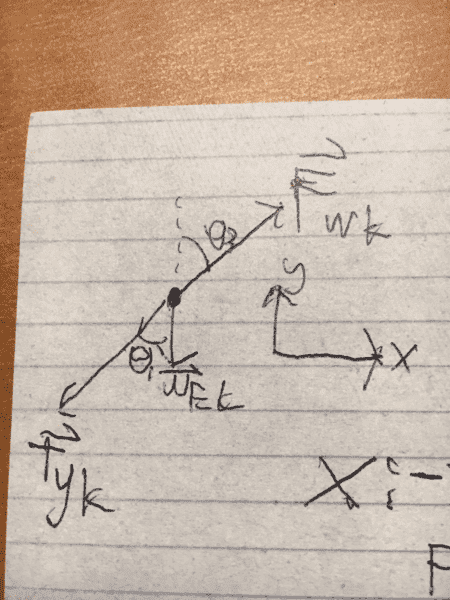 F
wk
θ₂
y
x
θ₁
W
Ek
T
yk
X: -
F